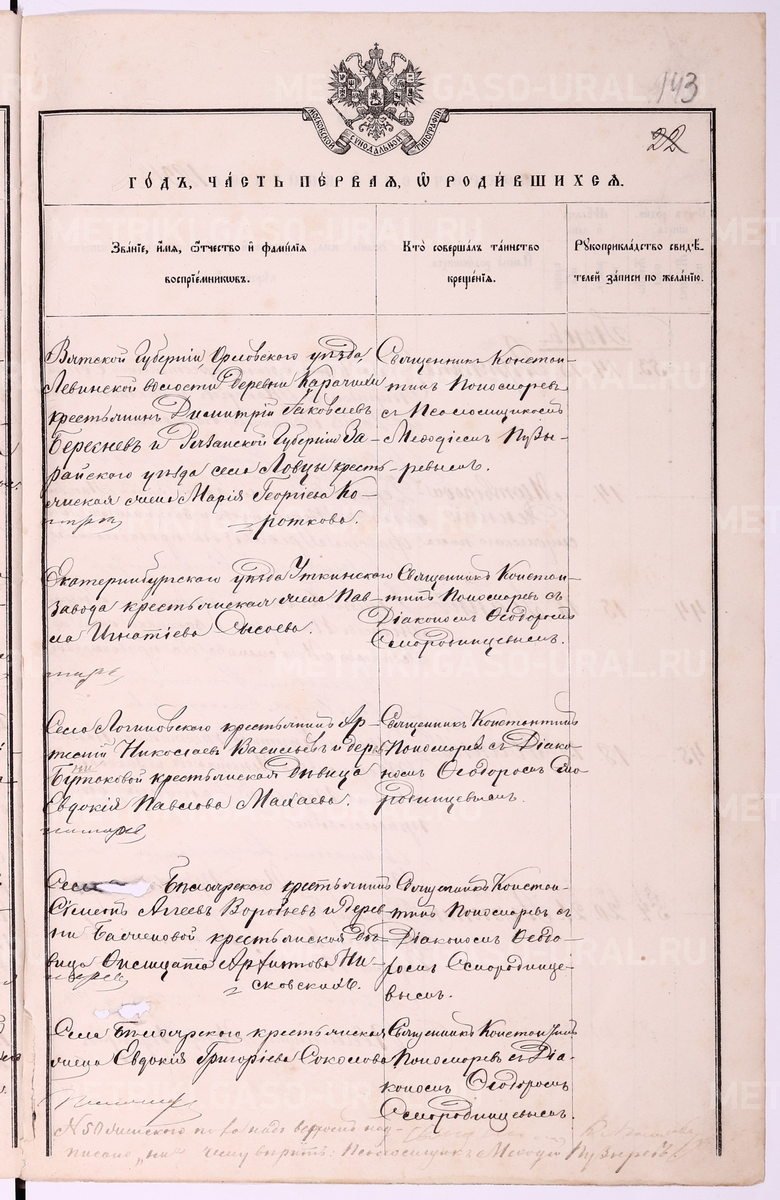 143
22
МОСКОВСКОЙ СѴНОДАЛЬНОЙ ТИПОГРАФІИ
ГОДЪ, ЧАСТЬ ПЕРВАЯ, Ѡ РОДИВШИХСЯ.
Званіе, имя, отчество и фамилія воспріемниковъ.
Кто совершалъ таинство крещенія.
Рукоприкладство свидѣтелей записи по желанію.
Вятской Губерніи, Орловскаго уѣзда,
Левинской волости деревни
крестьянинъ Димитрій Іаковлевъ
и Рязанской Губерніи За-
райскаго уѣзда села Ловцы кресть-
янская жена Марія Георгіева Ко-
роткова.
Священникъ Констан-
тинъ Пономаревъ
съ Псаломщикомъ
Меѳодіемъ Пузы-
ревымъ.
Екатеринбургскаго уѣзда Уткинскаго
завода крестьянская жена Пав-
ла Игнатіева Сысоева.
Священникъ Констан-
тинъ Пономаревъ съ
Діакономъ Ѳеодоромъ
Смородинцевымъ.
Села Логиновскаго крестьянинъ Ар-
темій Николаевъ Васильевъ и дерев
ни
Бутаковой крестьянская дѣвица
Евдокія Павлова Махаева.
Священникъ Константинъ
Пономаревъ съ Діако-
номъ Ѳеодоромъ Смо-
родинцевымъ.
Села Бѣлоярскаго крестьянинъ
Сѵмеонъ Аггеевъ Воробьевъ и дерев-
ни крестьянская дѣ-
вица
Священникъ Констан-
тинъ Пономаревъ съ
Діакономъ Ѳеодо-
ромъ Смородинце-
вымъ.
Села Бѣлоярскаго крестьянская
жена Евдокія Григоріева Соколова
Священникъ Константинъ
Пономаревъ съ Діа-
кономъ Ѳеодоромъ
Смородинцевымъ.
писано „ни“ чему вѣрить: Псаломщикъ Меѳодій Пузыревъ
METRIKI.GASO-URAL.RU